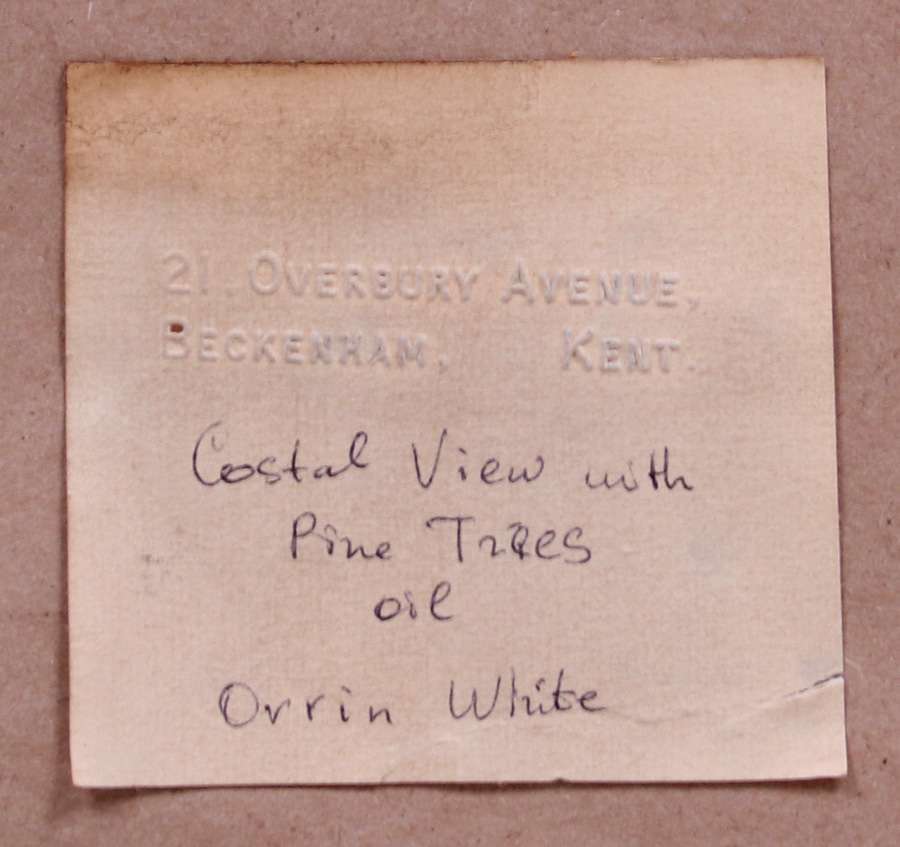 21. OVERBURY AVENUE,
BECKENHAM, KENT.
Costal View with
Pine Trees
oil
Orrin White